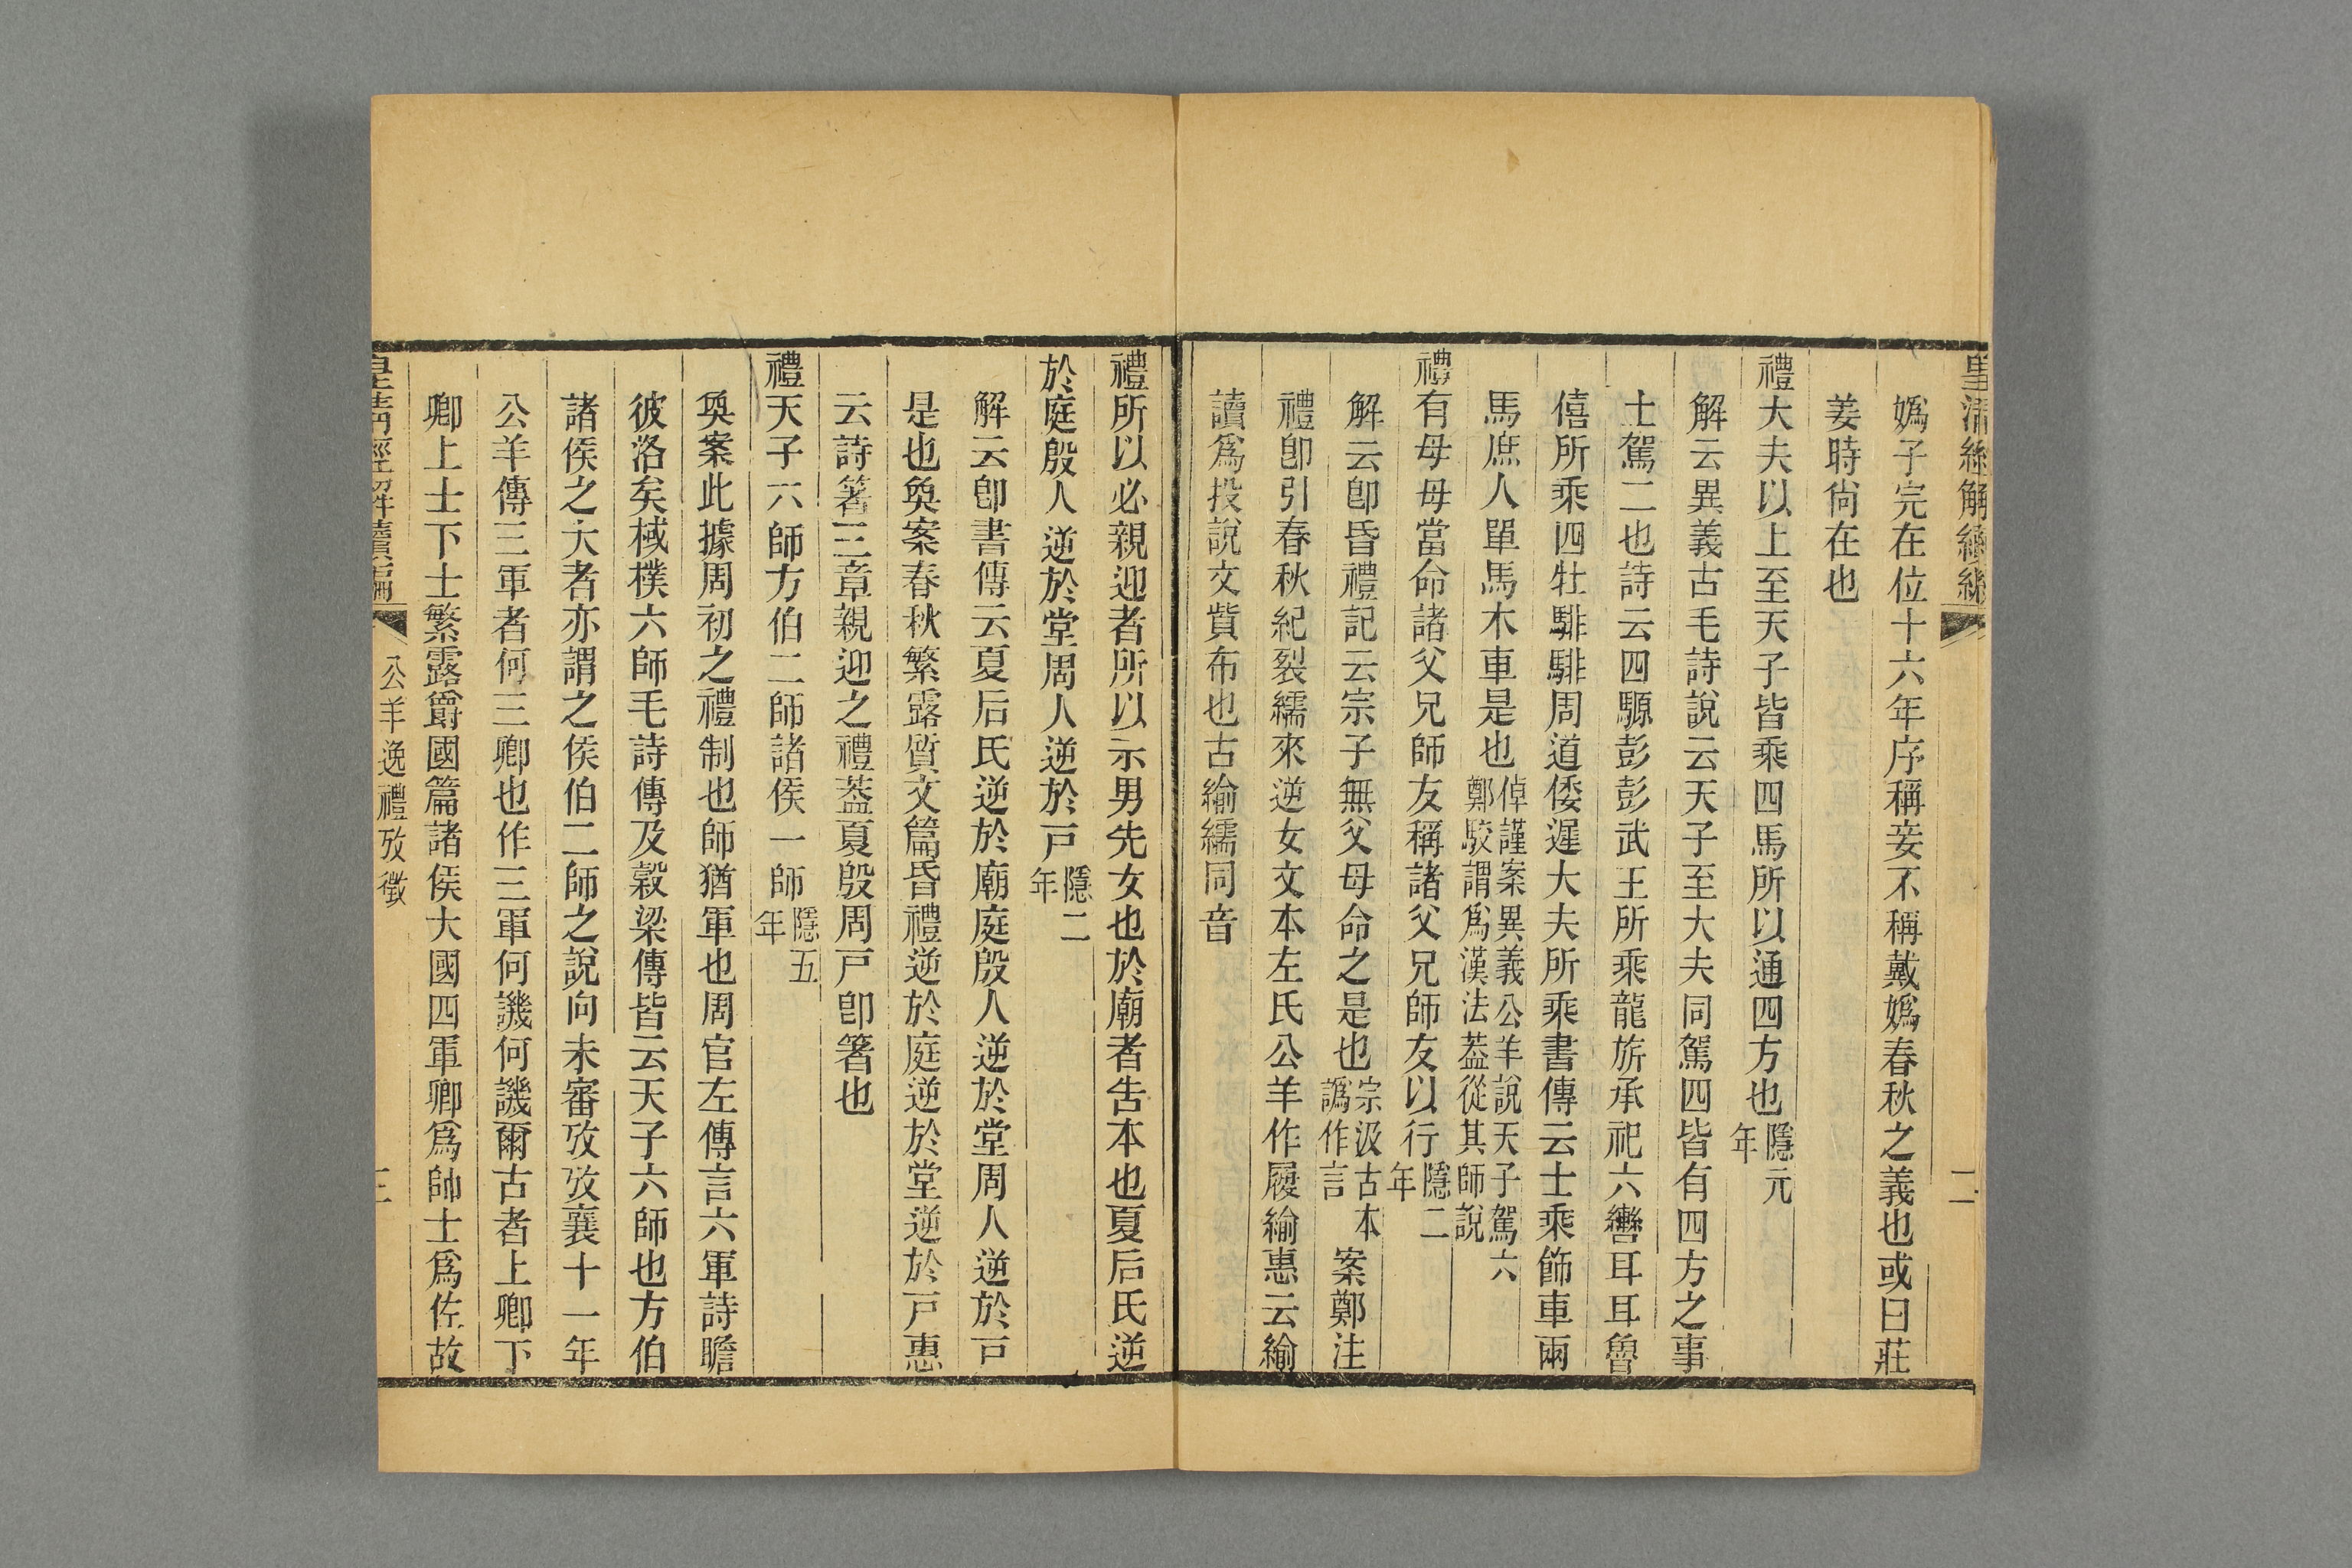 皇清經解續編
二
嬀子完在位十六年序稱妾不稱戴嬀春秋之義也或曰莊
姜時尙在也
禮大夫以上至天子皆乘四馬所以通四方也隱元年
解云異義古毛詩說云天子至大夫同駕四皆有四方之事
士駕二也詩云四騵彭彭武王所乘龍旂承祀六轡耳耳魯
僖所乘四牡騑騑周道倭遲大夫所乘書傳云士乘飾車兩
馬庶人單馬木車是也倬謹案異義公羊說天子駕六鄭駮謂爲漢法葢從其師說
禮有母母當命諸父兄師友稱諸父兄師友以行隱二年
解云卽昏禮記云宗子無父母命之是也宗汲古本譌作言案鄭注
禮卽引春秋紀裂繻來逆女文本左氏公羊作履緰惠云緰
讀爲投說文貲布也古緰繻同音
禮所以必親迎者所以示男先女也於廟者告本也夏后氏逆
於庭殷人逆於堂周人逆於戸隱二年
解云卽書傳云夏后氏逆於廟庭殷人逆於堂周人逆於戸
是也奐案春秋繁露質文篇昏禮逆於庭逆於堂逆於戸惠
云詩箸三章親迎之禮葢夏殷周戸卽箸也
禮天子六師方伯二師諸侯一師隱五年
奐案此據周初之禮制也師猶軍也周官左傳言六軍詩瞻
彼洛矣棫樸六師毛詩傳及穀梁傳皆云天子六師也方伯
諸侯之大者亦謂之侯伯二師之說向未審攷攷襄十一年
公羊傳三軍者何三卿也作三軍何譏何譏爾古者上卿下
卿上士下士繁露爵國篇諸侯大國四軍卿爲帥士爲佐故
皇清經解續編
公羊逸禮攷徵
三